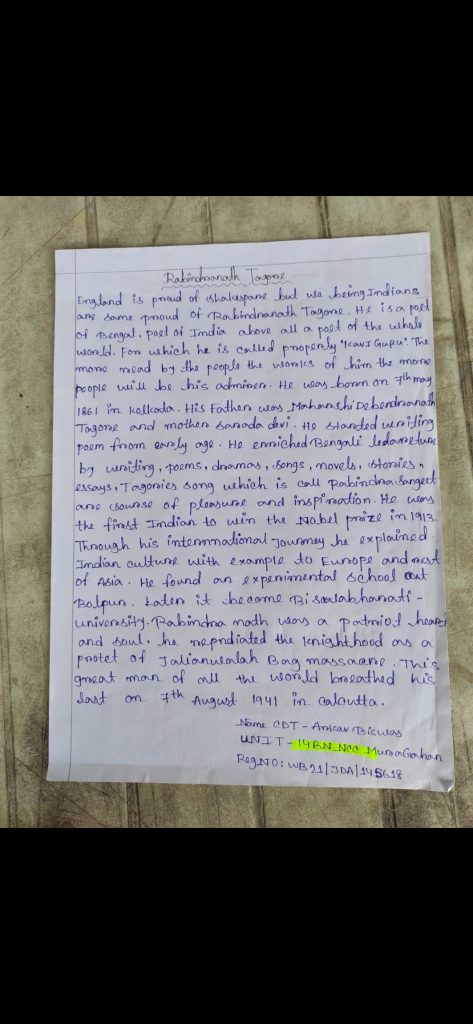 Rabindranath Tagore
England is proud of shakespare but we being Indians
are same proud of Rabindranath Tagore. He is a poet
of Bengal, poet of India above all a poet of the whole
world. For which he is called properly 'Kavi Guru'. The
more read by the people the works of him the more
people will be his admirer. He was born on 7th may
1861 in kolkata. His Father was Maharshi Debendranath
Tagore and mother Sarada devi. He started writing
poem from early age. He enriched Bengali
by writing, poems, dramas, songs, novels, stories,
essays, Tagories song which is call Rabindra Sangeet
are sourse of pleasure and inspiration. He was
the first Indian to win the Nobel prize in 1913.
Through his internnational-journey he explained
Indian culture with example to Europe and rest
of Asia. He found an experimental school at
Bolpur. Later it become
university. Rabindra nath was a patriot heart
and soul. he repndiated the knighthood as a
protet of Jalianwalah Bag massacare. This
great man of all the world breathed his
last on 7th August 1941 in calcutta.
Name CDT - Anikav Biswas
UNIT - 14 BN_NCC
Reg.NO: WB21/JDA/145618